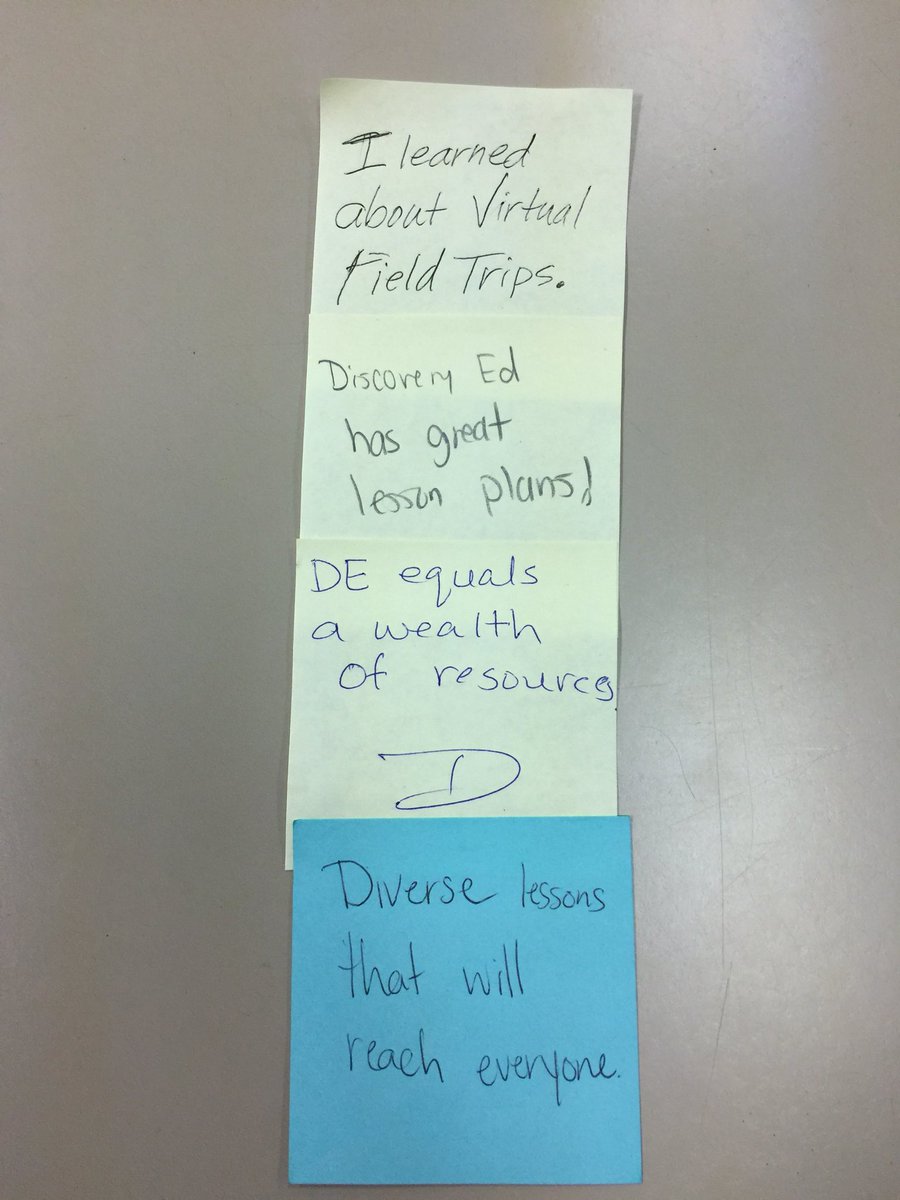 I learned
about Virtual
Field Trips.
Discovery Ed
has great
lesson plans!
DE equals
a wealth
of resources
D
Diverse lessons
that will
reach everyone.